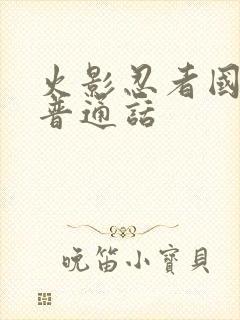 火影忍者國
普通話
晚笛小寶貝